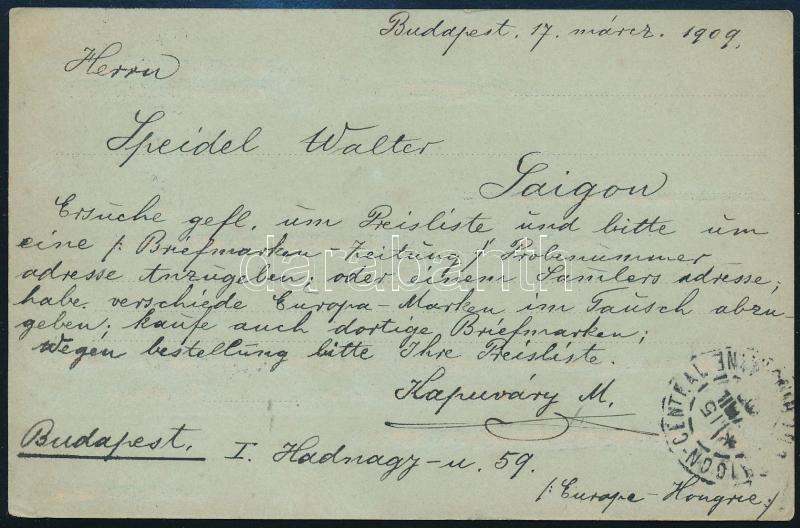 Budapest, 17. márcz. 1909.
Herrn
Speidel Walter
Saigon
Ersuche gefl. um Preisliste und bitte um
eine /: Briefmarken-Zeitung :/ Probenummer
adresse Anzugeben; oder einem Samlers adresse;
habe verschiede Europa-Marken im Tausch abzu-
geben; kaufe auch dortige Briefmarken;
Wegen bestellung bitte Ihre Preisliste.
Kapuváry M.
Budapest. I. Hadnagy-u. 59.
/: Europe-Hongrie :/
darabanth
SAIGON-CENTRAL